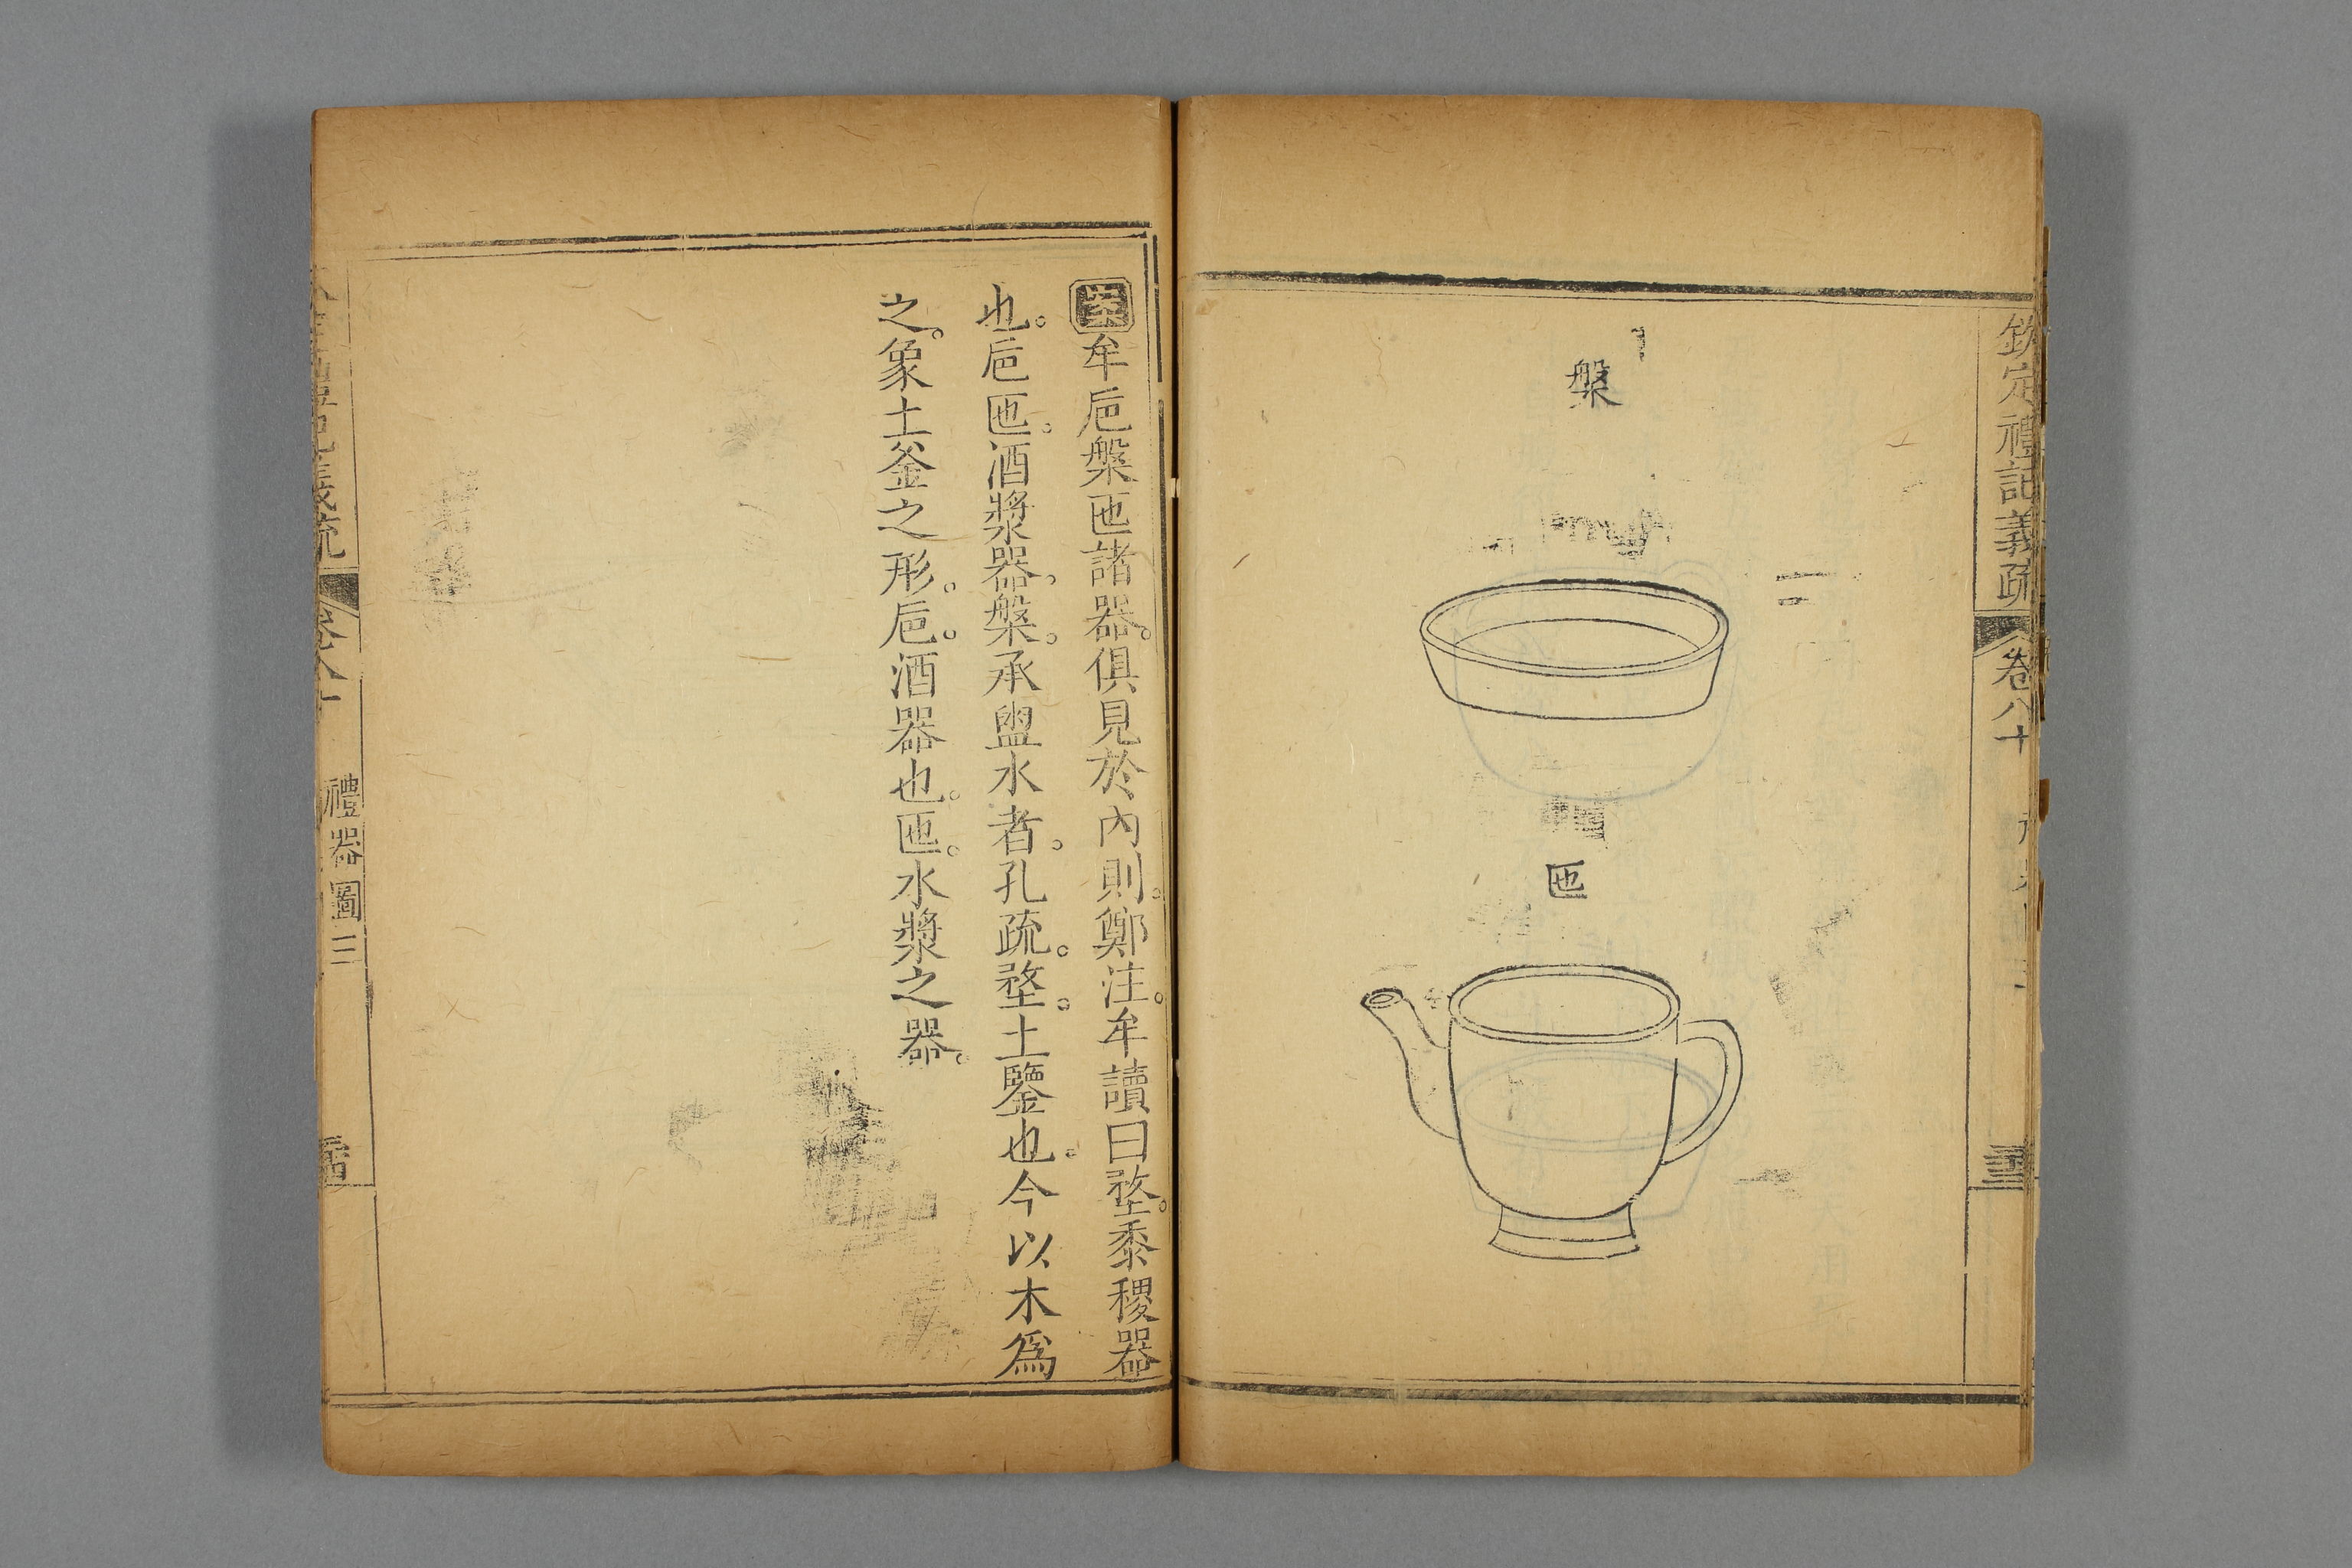 欽定禮記義疏　卷八十
槃
匜
案牟巵槃匜諸器。俱見於內則。鄭注。牟讀曰堥。黍稷器
也。巵匜。酒漿器。槃。承盥水者。孔疏。堥。土鑒也。今以木爲
之。象土釜之形。巵。酒器也。匜。水漿之器。
禮記義疏　卷八十　禮器圖三